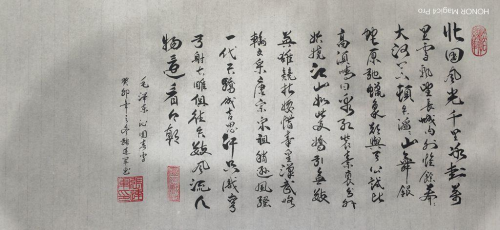 HONOR Magic4 Pro
北国风光千里冰封万
里雪飘望长城内外惟余莽
大河上下頓失滔滔山舞银
蛇原驰蜡象欲与天公试比
高须晴日看红装素裹分外
妖娆江山如此多娇引无数
英雄竞折腰惜秦皇汉武略
输文采唐宗宋祖稍逊风骚
一代天骄成吉思汗只识弯
弓射大雕俱往矣数风流人
物還看今朝
毛泽东沁园春雪
癸卯年之